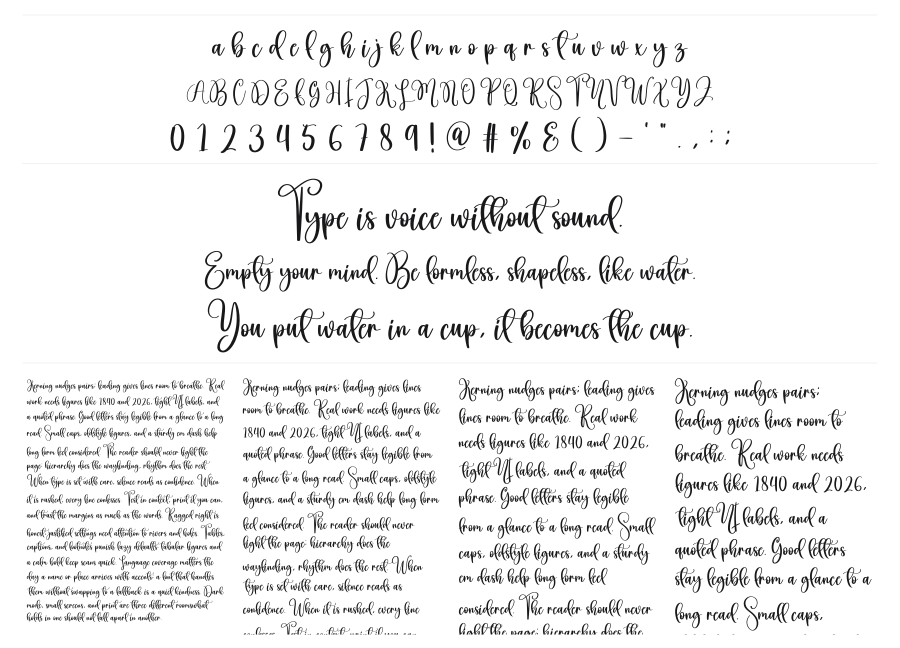 a b c d e f g h i j k l m n o p q r s t u v w x y z
A B C D E F G H I J K L M N O P Q R S T U V W X Y Z
0 1 2 3 4 5 6 7 8 9 ! @ # % & ( ) – ' " . , : ;
Type is voice without sound.
Empty your mind. Be formless, shapeless, like water.
You put water in a cup, it becomes the cup.
Kerning nudges pairs; leading gives lines room to breathe. Real
work needs figures like 1840 and 2026, tight UI labels, and
a quoted phrase. Good letters stay legible from a glance to a long
read. Small caps, oldstyle figures, and a sturdy em dash help
long form feel considered. The reader should never fight the
page; hierarchy does the wayfinding, rhythm does the rest.
When type is set with care, silence reads as confidence. When
it is rushed, every line confesses. Test in context, print if you can,
and trust the margins as much as the words. Ragged right is
honest; justified settings need attention to rivers and holes. Tables,
captions, and footnotes punish lazy defaults; tabular figures and
a calm bold keep scans quick. Language coverage matters the
day a name or place arrives with accents; a font that handles
them without swapping to a fallback is a quiet kindness. Dark
mode, small screens, and print are three different rooms; what
holds in one should not fall apart in another.
Kerning nudges pairs; leading gives lines
room to breathe. Real work needs figures like
1840 and 2026, tight UI labels, and a
quoted phrase. Good letters stay legible from
a glance to a long read. Small caps, oldstyle
figures, and a sturdy em dash help long form
feel considered. The reader should never
fight the page; hierarchy does the
wayfinding, rhythm does the rest. When
type is set with care, silence reads as
confidence. When it is rushed, every line
confesses. Test in context, print if you can,
Kerning nudges pairs; leading gives
lines room to breathe. Real work
needs figures like 1840 and 2026,
tight UI labels, and a quoted
phrase. Good letters stay legible
from a glance to a long read. Small
caps, oldstyle figures, and a sturdy
em dash help long form feel
considered. The reader should never
fight the page; hierarchy does the
Kerning nudges pairs;
leading gives lines room to
breathe. Real work needs
figures like 1840 and 2026,
tight UI labels, and a
quoted phrase. Good letters
stay legible from a glance to a
long read. Small caps,